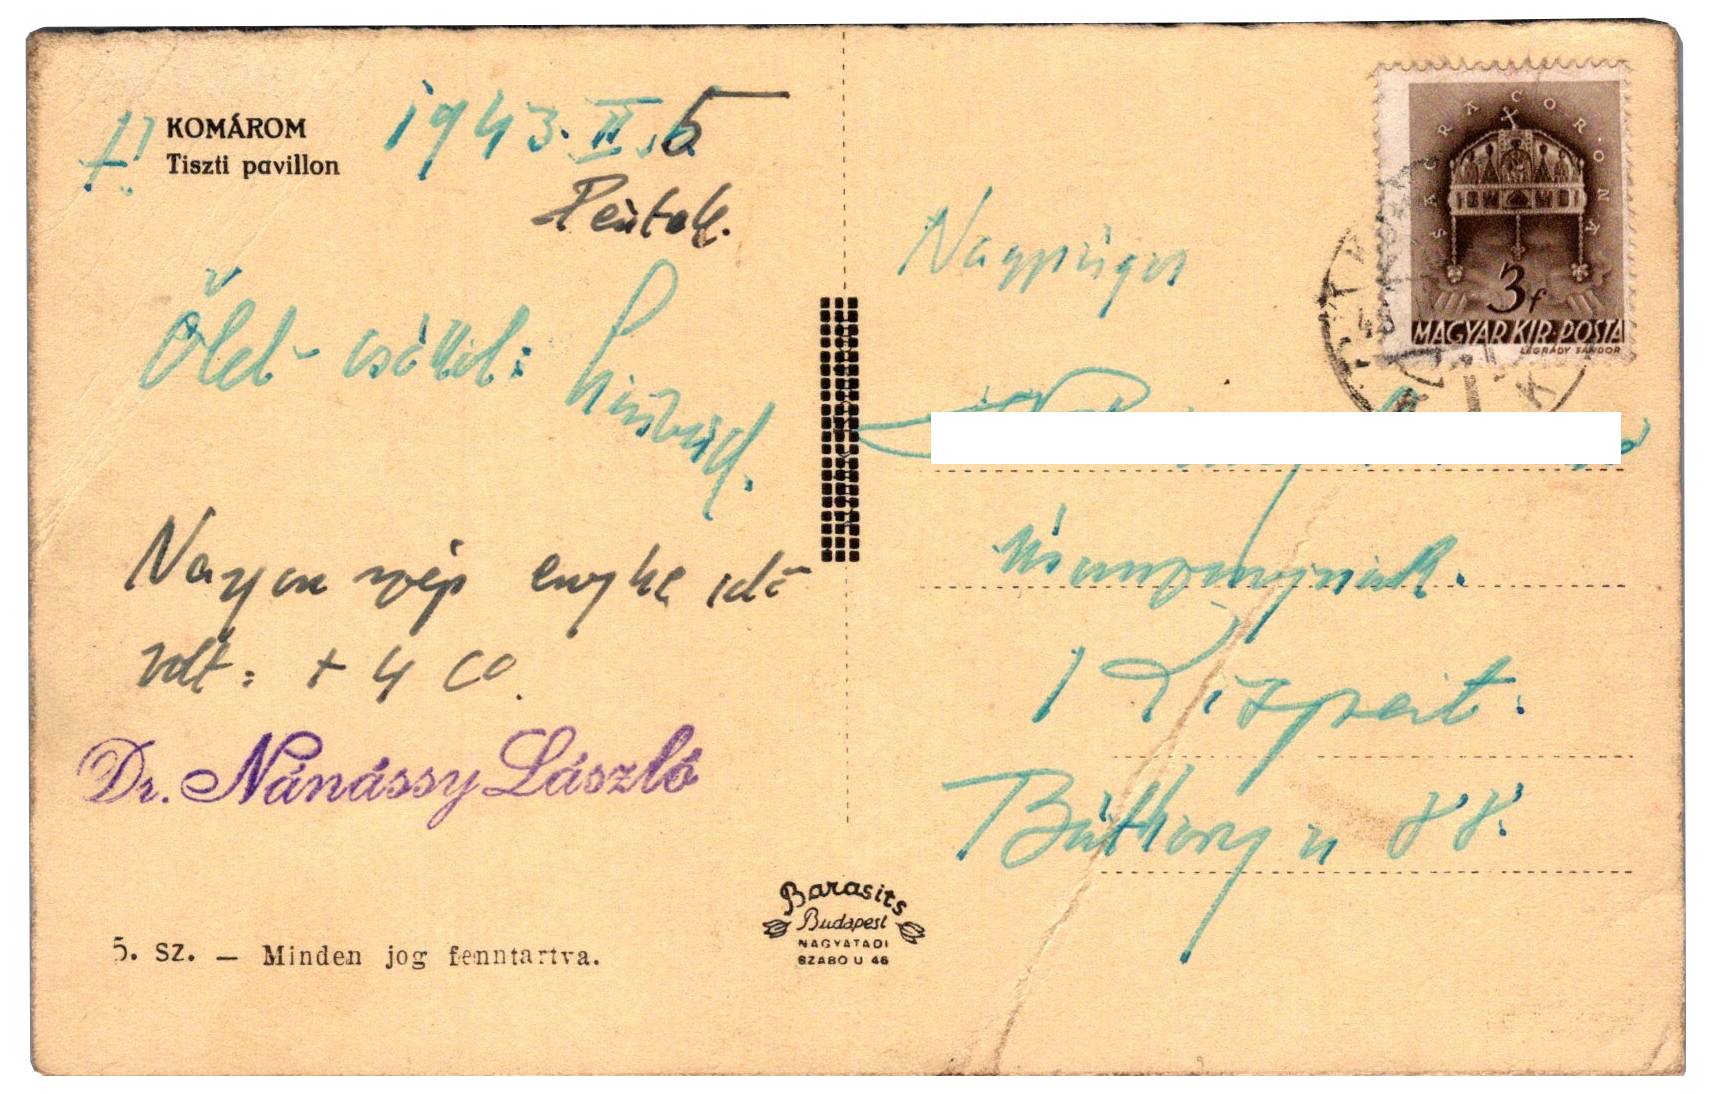 KOMÁROM
Tiszti pavillon
1943. II. 5
Péntek.
Ölel csókol:
Nagyon szép enyhe idő
volt: + 4 C°.
Dr. Nánássy László
5. SZ. — Minden jog fenntartva.
Barasits
Budapest
NAGYATADI
SZABO U 46
SACRA CORONA
3f
MAGYAR KIR. POSTA
LEGRÁDY SÁNDOR
Nagyságos
úrasszonynak.
Báthory u